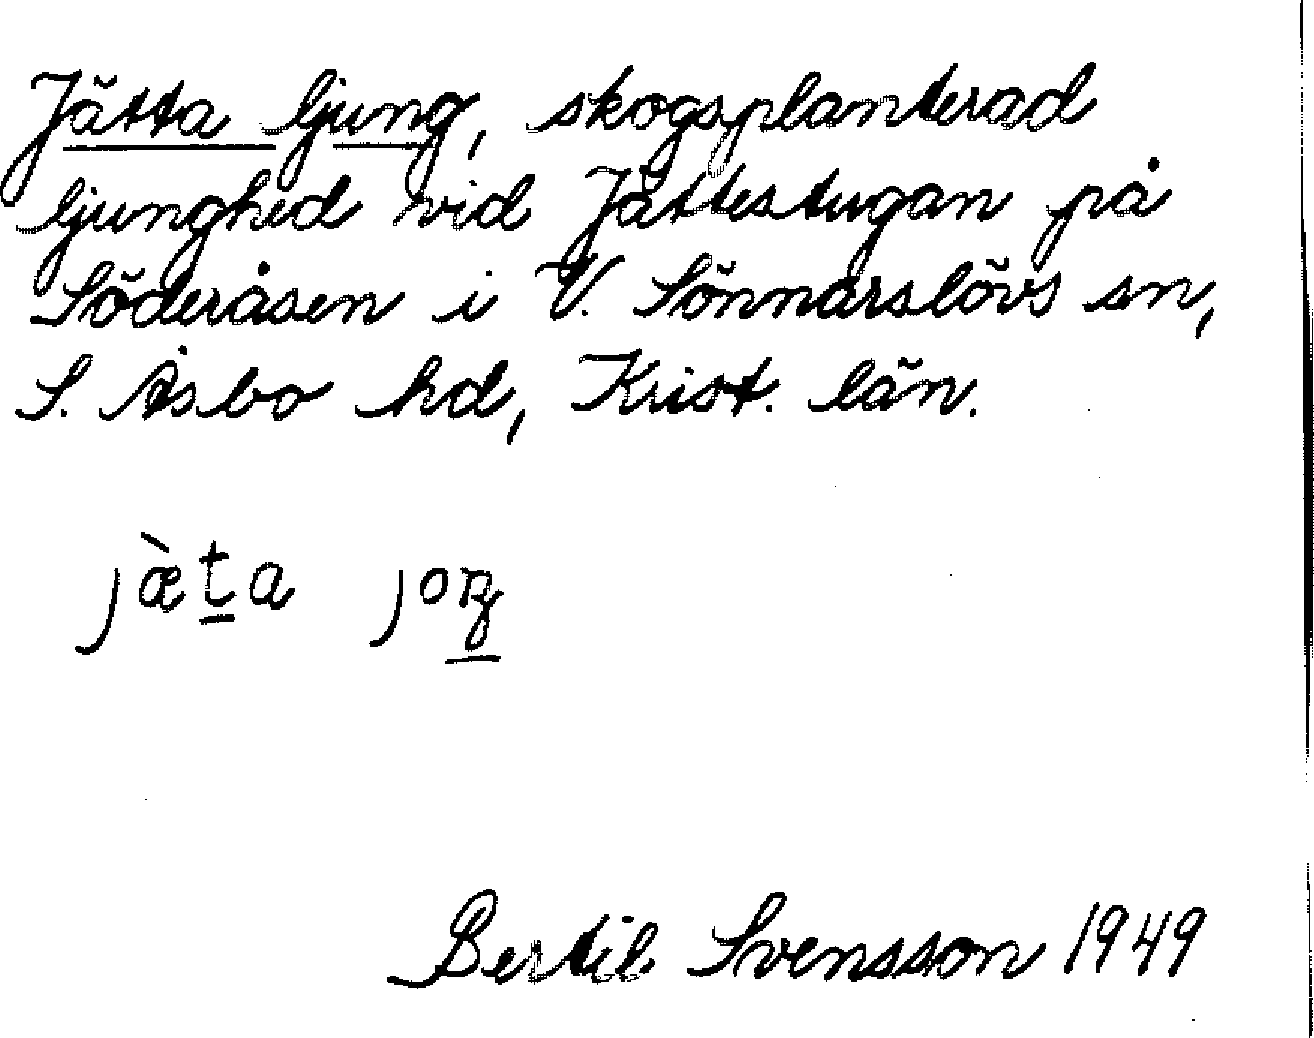 Jätta ljung, skogsplanterad
ljunghed vid Jättestugan på
Söderåsen i V. Sönnarslövs sn,
S. Åsbo hd, Krist. län.
jæ̀t̲a joŋ̲
Bertil Svensson 1949